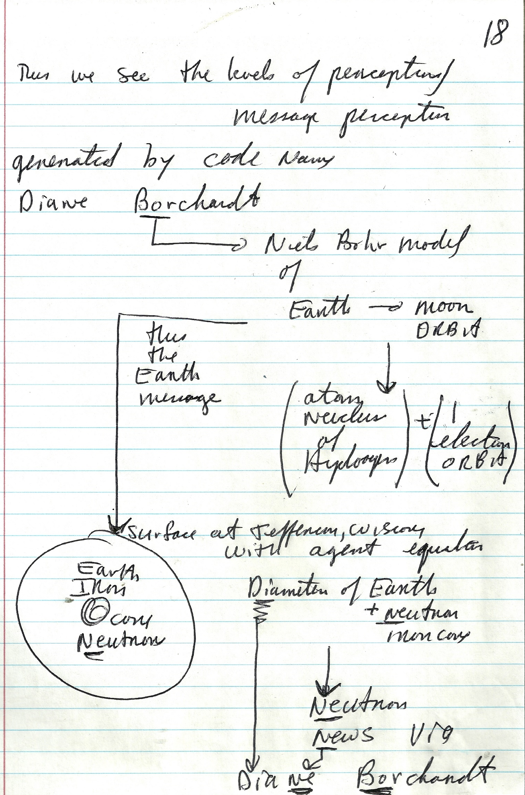 18
Thus we see the levels of perception/
message perception
generated by code Name
Diane Borchardt
Niels Bohr model
of
Earth → moon
ORBIT
thus
the
Earth
message
(atom
Neucleus
of
Hydrogen) + (1
electron
ORBIT)
Surface at Jefferson, Wiscons
with agent equation
Earth
Iron
core
Neutron
Diameter of Earth
+ neutron
iron core
Neutron
News via
Diane Borchardt